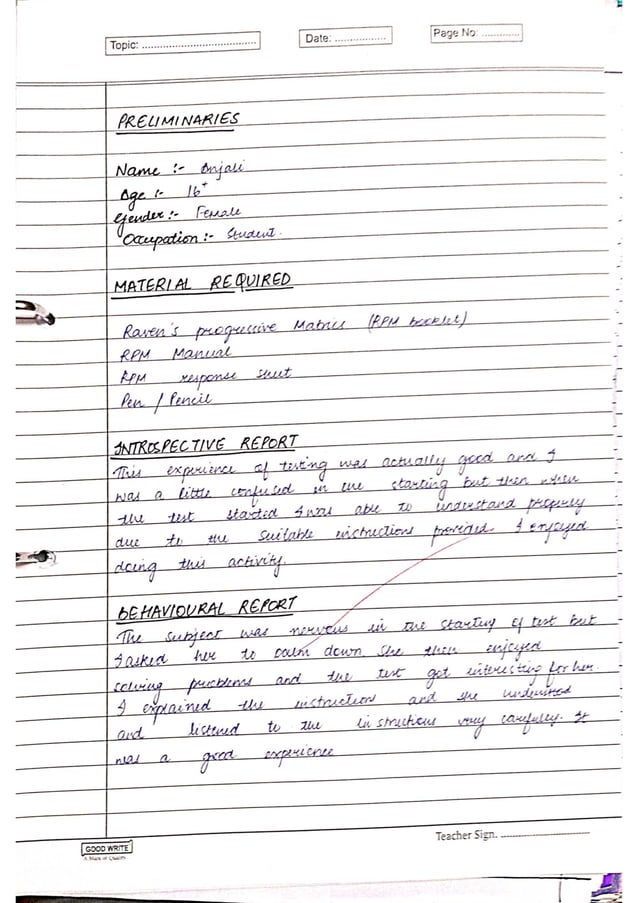 Topic: ........................................
Date: ..................
Page No: ..............
PRELIMINARIES
Name :- Anjali
Age :- 16+
Gender :- Female
Occupation :- Student.
MATERIAL REQUIRED
Raven's progressive Matrics (RPM booklet)
RPM Manual
RPM response sheet
Pen / Pencil
INTROSPECTIVE REPORT
This experience of testing was actually good and I
was a little confused in the starting but then when
the test started I was able to understand properly
due to the suitable instructions provided. I enjoyed
doing this activity.
BEHAVIOURAL REPORT
The subject was nervous in the starting of test but
I asked her to calm down. She then enjoyed
solving problems and the test got interesting for her.
I explained the instructions and she understood
and listened to the instructions very carefully. It
was a good experience
Teacher Sign. ..............................
GOOD WRITE
A Mark of Quality